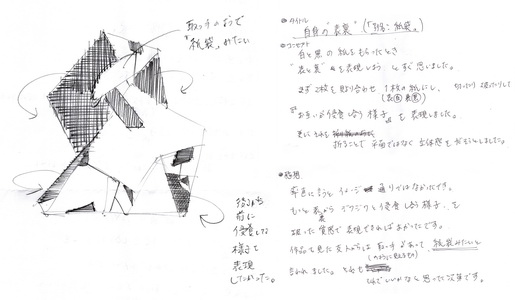 取っ手のようで
"紙袋"みたい
後ろから
前に
侵食してる
様子を
表現
したかった。
●タイトル
自身の"表裏"(「別名:紙袋」)
●コンセプト
白と黒の紙をもらったとき
"表と裏"を表現しようとすぐ思いました。
まず2枚を貼り合わせ 1枚の紙にし、
(表白裏黒)
お互いが侵食し合う様子を表現しました。
更にそれを
折ることで平面ではなく立体感をだそうとしました。
●感想
率直に言うとイメージ通りではなかったです。
もっと裏からグワグワと侵食し合う様子を
狙った質感で表現できればよかったです。
作品を見た友人からは取っ手があって、紙袋みたいと
(のように見える物)
言われました。それも
それでいいかなと思った次第です。